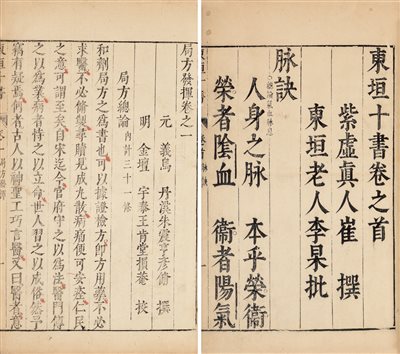 東垣十書卷之首
紫虛真人崔 撰
東垣老人李杲批
脉訣
人身之脉 本乎榮衛
榮者陰血 衞者陽氣
局方發揮卷之一
元 義烏 丹溪朱震亨彥脩 撰
明 金壇 宇泰王肯堂損菴 校
局方總論 內計三十一條
和劑局方之為書也可以據證檢方即方用藥不必
求醫不必修製尋贖見成丸散病痛便可安痊仁民
之意可謂至矣自宋迄今官府守之以為法醫門傳
之以為業病者恃之以立命世人習之以成俗然予
竊有疑焉何者古人以神聖工巧言醫又曰醫者意